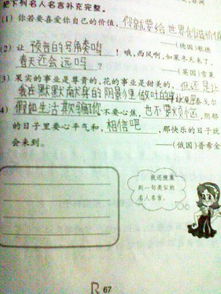 把下列名人名言补充完整。
(1) 你若要喜爱你自己的价值，你就要给世界创造价值
(德国)歌德
(2) 让预言的号角奏鸣！哦，西风啊，如果冬天来了，
春天还会远吗？(英国)雪莱
(3) 果实的事业是尊贵的，花的事业是甜美的，但还是让
我在默默献身的阴影里做叶的事业吧
(4) 假如生活欺骗了你，不要心焦，也不要
的日子里要心平气和，相信吧，那快乐的日子就
会来到。(俄国)普希金
我还搜集
到一句类似的
名人名言。
67